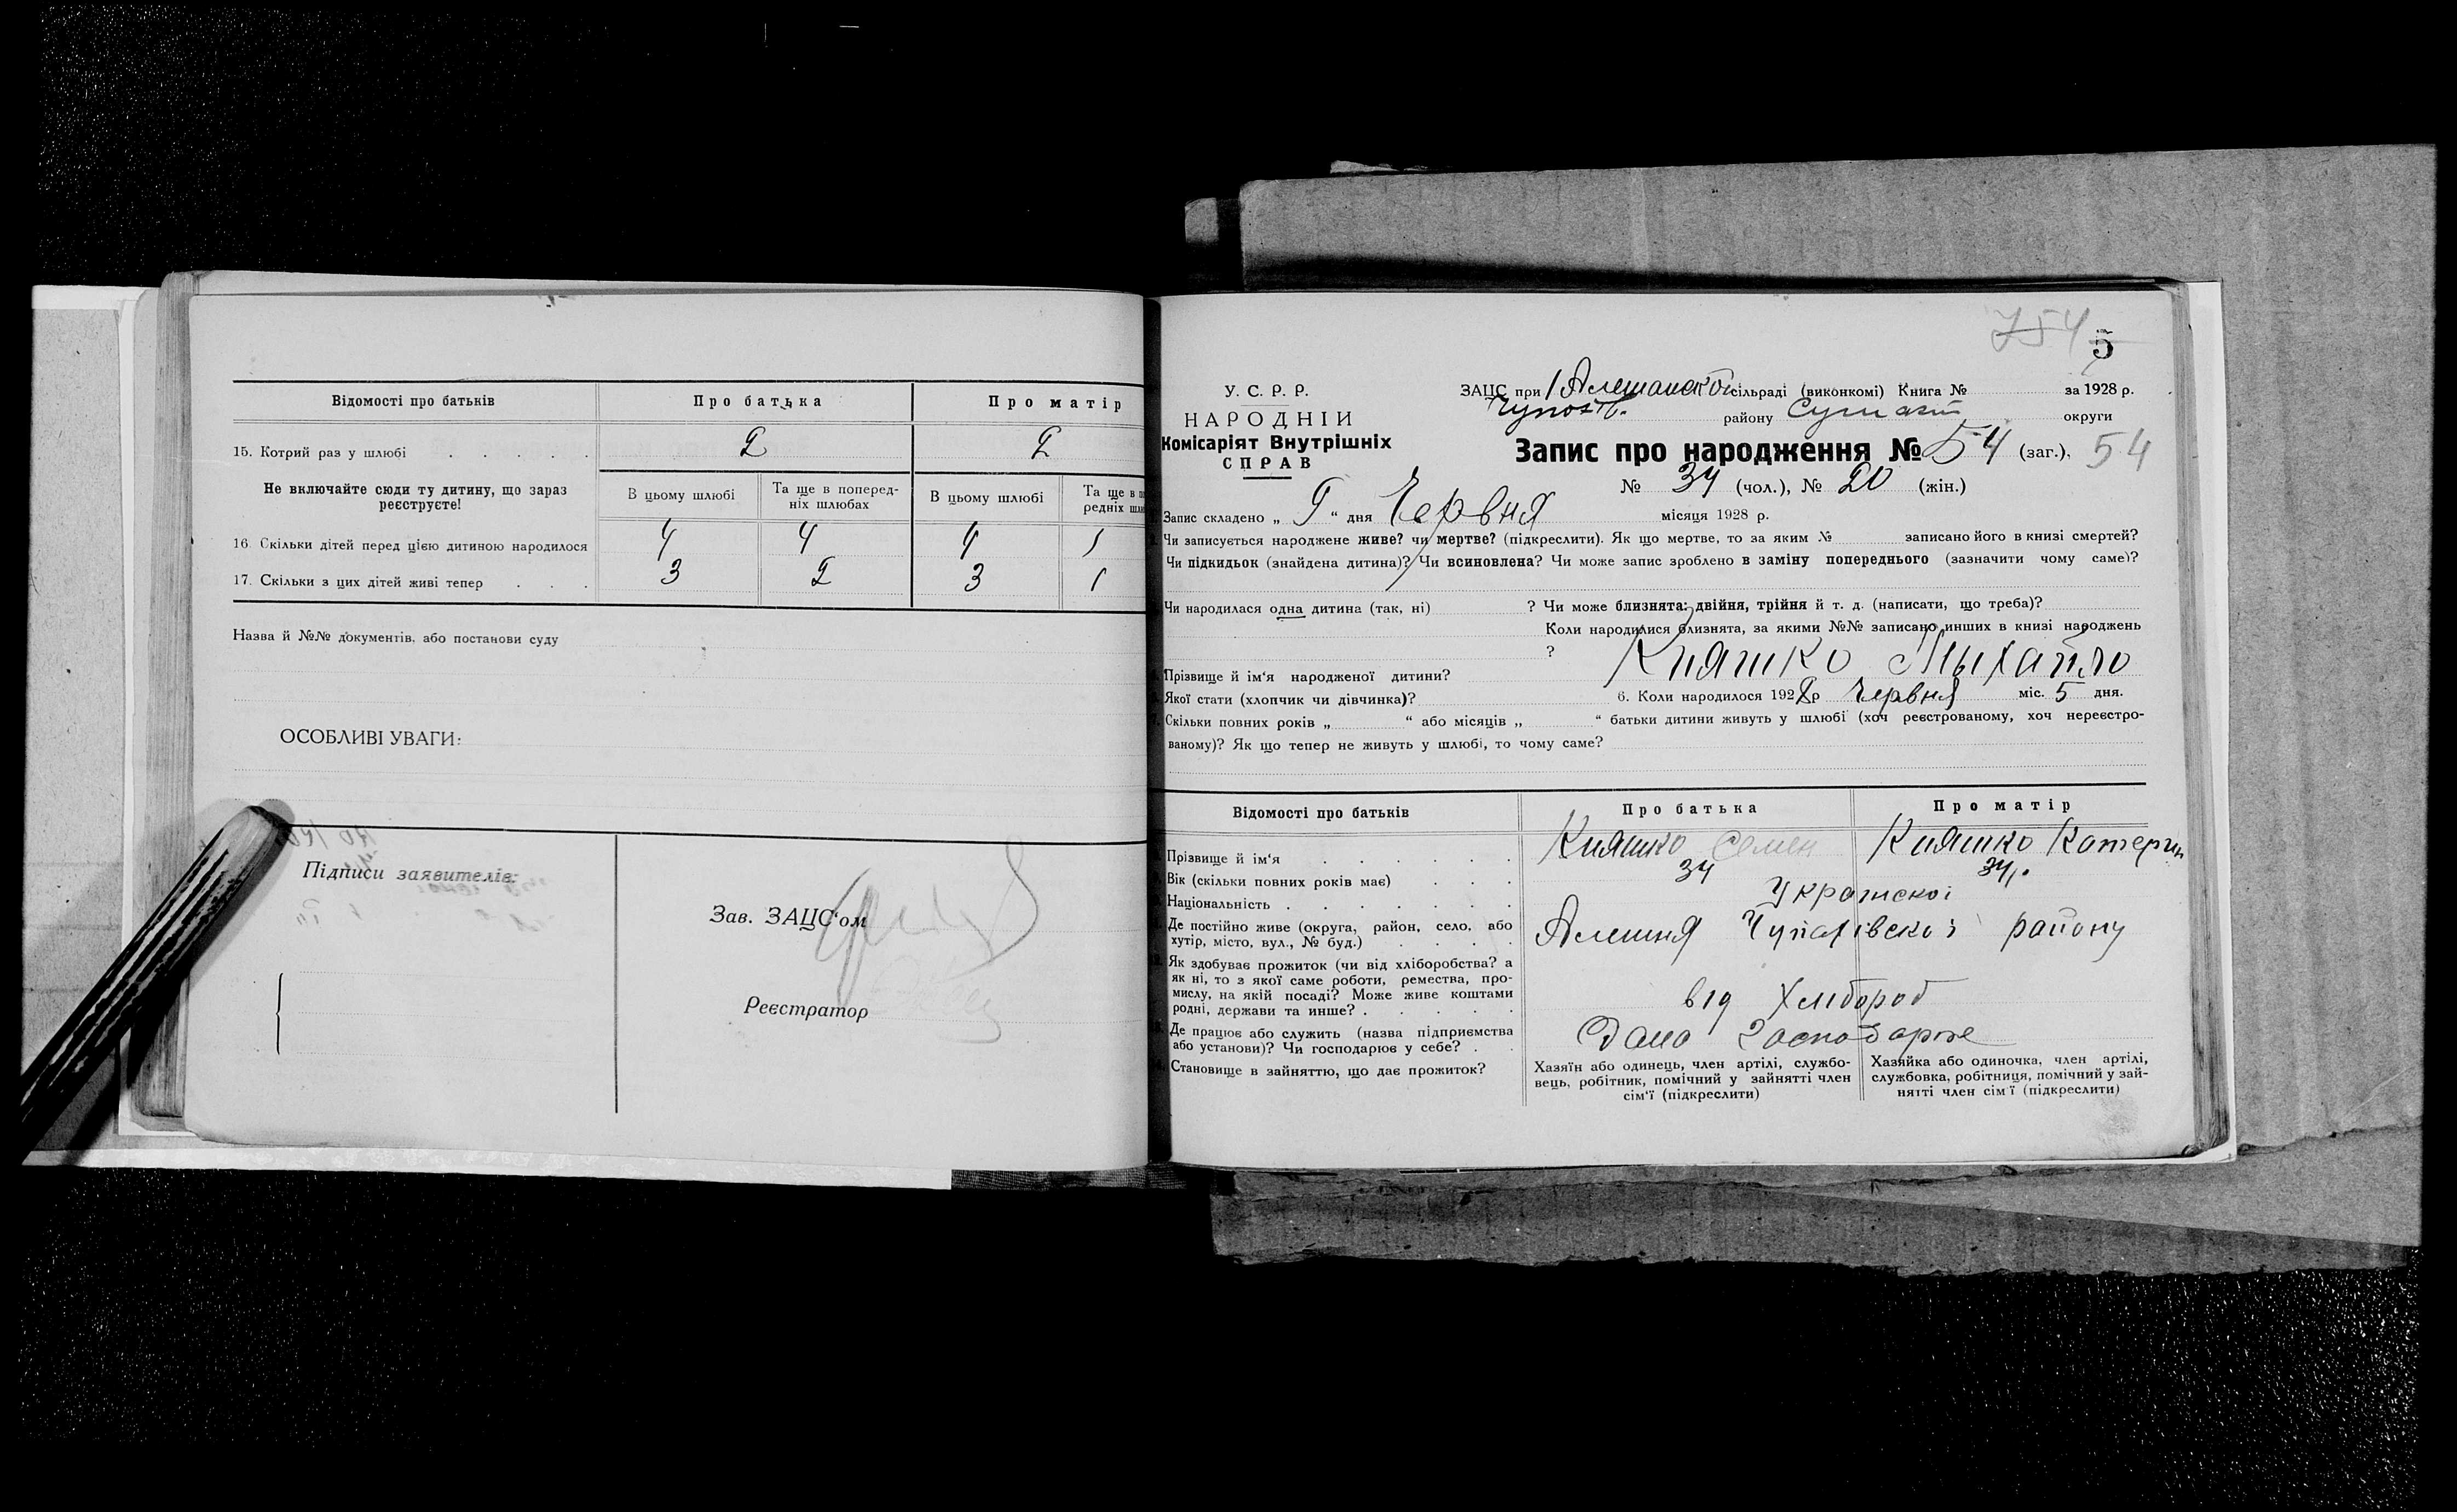 Відомості про батьків
Про батька
Про матір
15. Котрий раз у шлюбі
2
2
Не включайте сюди ту дитину, що зараз реєструєте!
В цьому шлюбі
Та ще в поперед-
ніх шлюбах
В цьому шлюбі
Та ще в по
редніх шлю
16. Скільки дітей перед цією дитиною народилося
4
4
4
1
17. Скільки з цих дітей живі тепер
3
2
3
1
Назва й №№ документів, або постанови суду
ОСОБЛИВІ УВАГИ:
Підписи заявителів:
Зав. ЗАЦС'ом
Реєстратор
754
5
У. С. Р. Р.
НАРОДНІЙ
Комісаріят Внутрішніх
СПРАВ
ЗАЦС при Алешанской сільраді (виконкомі) Книга № за 1928 р.
району Сумской округи
Запис про народження № 54 (заг.), 54
№ 34 (чол.), № 20 (жін.)
Запис складено „ 9 “ дня Червня місяця 1928 р.
Чи записується народжене живе? чи мертве? (підкреслити). Як що мертве, то за яким № записано його в книзі смертей?
Чи підкидьок (знайдена дитина)? Чи всиновлена? Чи може запис зроблено в заміну попереднього (зазначити чому саме)?
Чи народилася одна дитина (так, ні) ? Чи може близнята: двійня, трійня й т. д. (написати, що треба)?
Коли народилися близнята, за якими №№ записано инших в книзі народжень
?
Прізвище й ім'я народженої дитини? Кияшко Мыхайло
Якої стати (хлопчик чи дівчинка)? 6. Коли народилося 1928 р Червня міс. 5 дня.
Скільки повних років „ “ або місяців „ “ батьки дитини живуть у шлюбі (хоч реєстрованому, хоч нереєстро-
ваному)? Як що тепер не живуть у шлюбі, то чому саме?
Відомості про батьків
Про батька
Про матір
Прізвище й ім'я
Кияшко Семен
Кияшко Катерин
Вік (скільки повних років має)
34
34.
Національність
Украінскоі
Де постійно живе (округа, район, село, або
хутір, місто, вул., № буд.)
Алешня Чупахівскоі району
Як здобуває прожиток (чи від хліборобства? а
як ні, то з якої саме роботи, ремества, про-
мислу, на якій посаді? Може живе коштами
родні, держави та инше?
від Хлібороб
Де працює або служить (назва підприємства
або установи)? Чи господарює у себе?
Дома господарюе
Становище в зайняттю, що дає прожиток?
Хазяїн або одинець, член артілі, службо-
вець, робітник, помічний у зайнятті член
сім'ї (підкреслити)
Хазяйка або одиночка, член артілі,
службовка, робітниця, помічний у зай-
нятті член сім'ї (підкреслити)